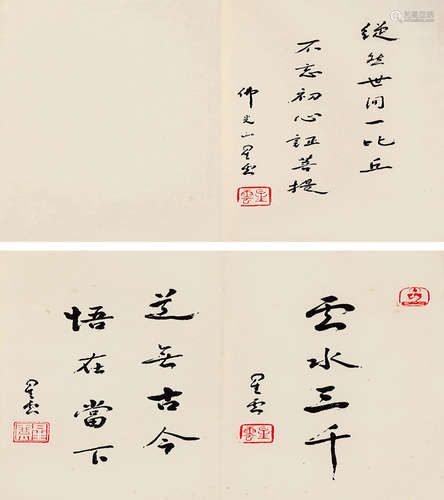 縱然世间一比丘
不忘初心証菩提
佛光山星雲
云水三千
星雲
道無古今
悟在當下
星雲